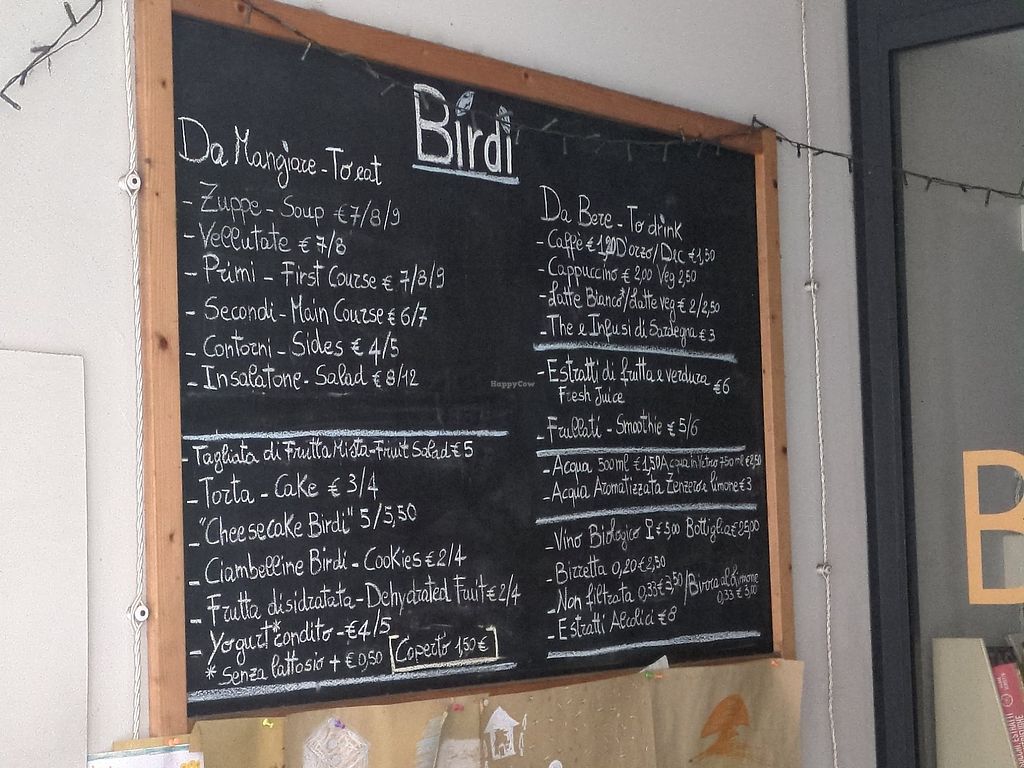 Birdi
Da Mangiare - To eat
- Zuppe - Soup €7/8/9
- Vellutate € 7/8
- Primi - First Course € 7/8/9
- Secondi - Main Course € 6/7
- Contorni - Sides € 4/5
- Insalatone - Salad € 8/12
- Tagliata di Frutta Mista - Fruit Salad € 5
- Torta - Cake € 3/4
- "Cheesecake Birdi" 5/5,50
- Ciambelline Birdi - Cookies € 2/4
- Frutta disidratata - Dehydrated Fruit € 2/4
- Yogurt* condito - €4/5
* Senza lattosio + €0,50
Coperto 1,50 €
Da Bere - To drink
- Caffè € D'orzo/Dec €1,50
- Cappuccino € 2,00 Veg 2,50
- Latte Bianco*/Latte veg € 2/2,50
- The e Infusi di Sardegna € 3
- Estratti di frutta e verdura €6
Fresh Juice
- Frullati - Smoothie € 5/6
- Acqua 500ml €1,50 Acqua in Vetro 750 ml €2,50
- Acqua Aromatizzata Zenzero e limone € 3
- Vino Biologico I € 5,00 Bottiglia € 25,00
- Birretta 0,20 €2,50
- Non filtrata 0,33 € 3,50 / Birra al limone
0,33 € 3,00
- Estratti Alcolici €8
HappyCow
B